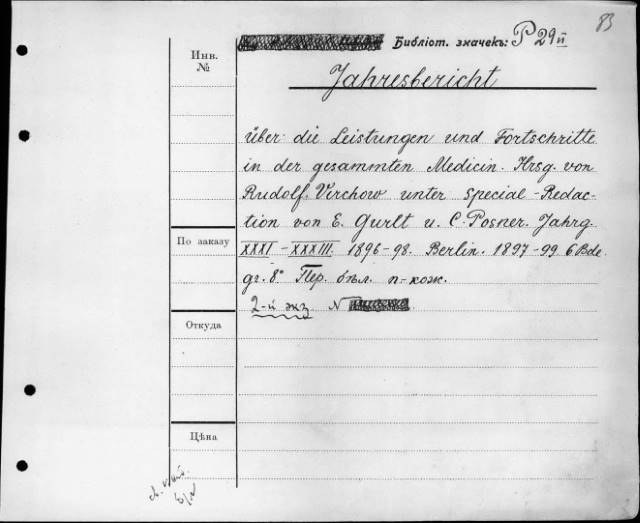 83
Библіот. значекъ: P 29 II
Инв. №
Jahresbericht
über die Leistungen und Fortschritte
in der gesammten Medicin. Hrsg. von
Rudolf Virchow unter Special-Redac-
tion von E. Gurlt u. C. Posner. Jahrg.
XXXI-XXXIII. 1896-98. Berlin. 1897-99. 6 Bde.
gr. 8° Пер. бѣл. п-кож.
2-й экз. N
По заказу
Откуда
Цѣна